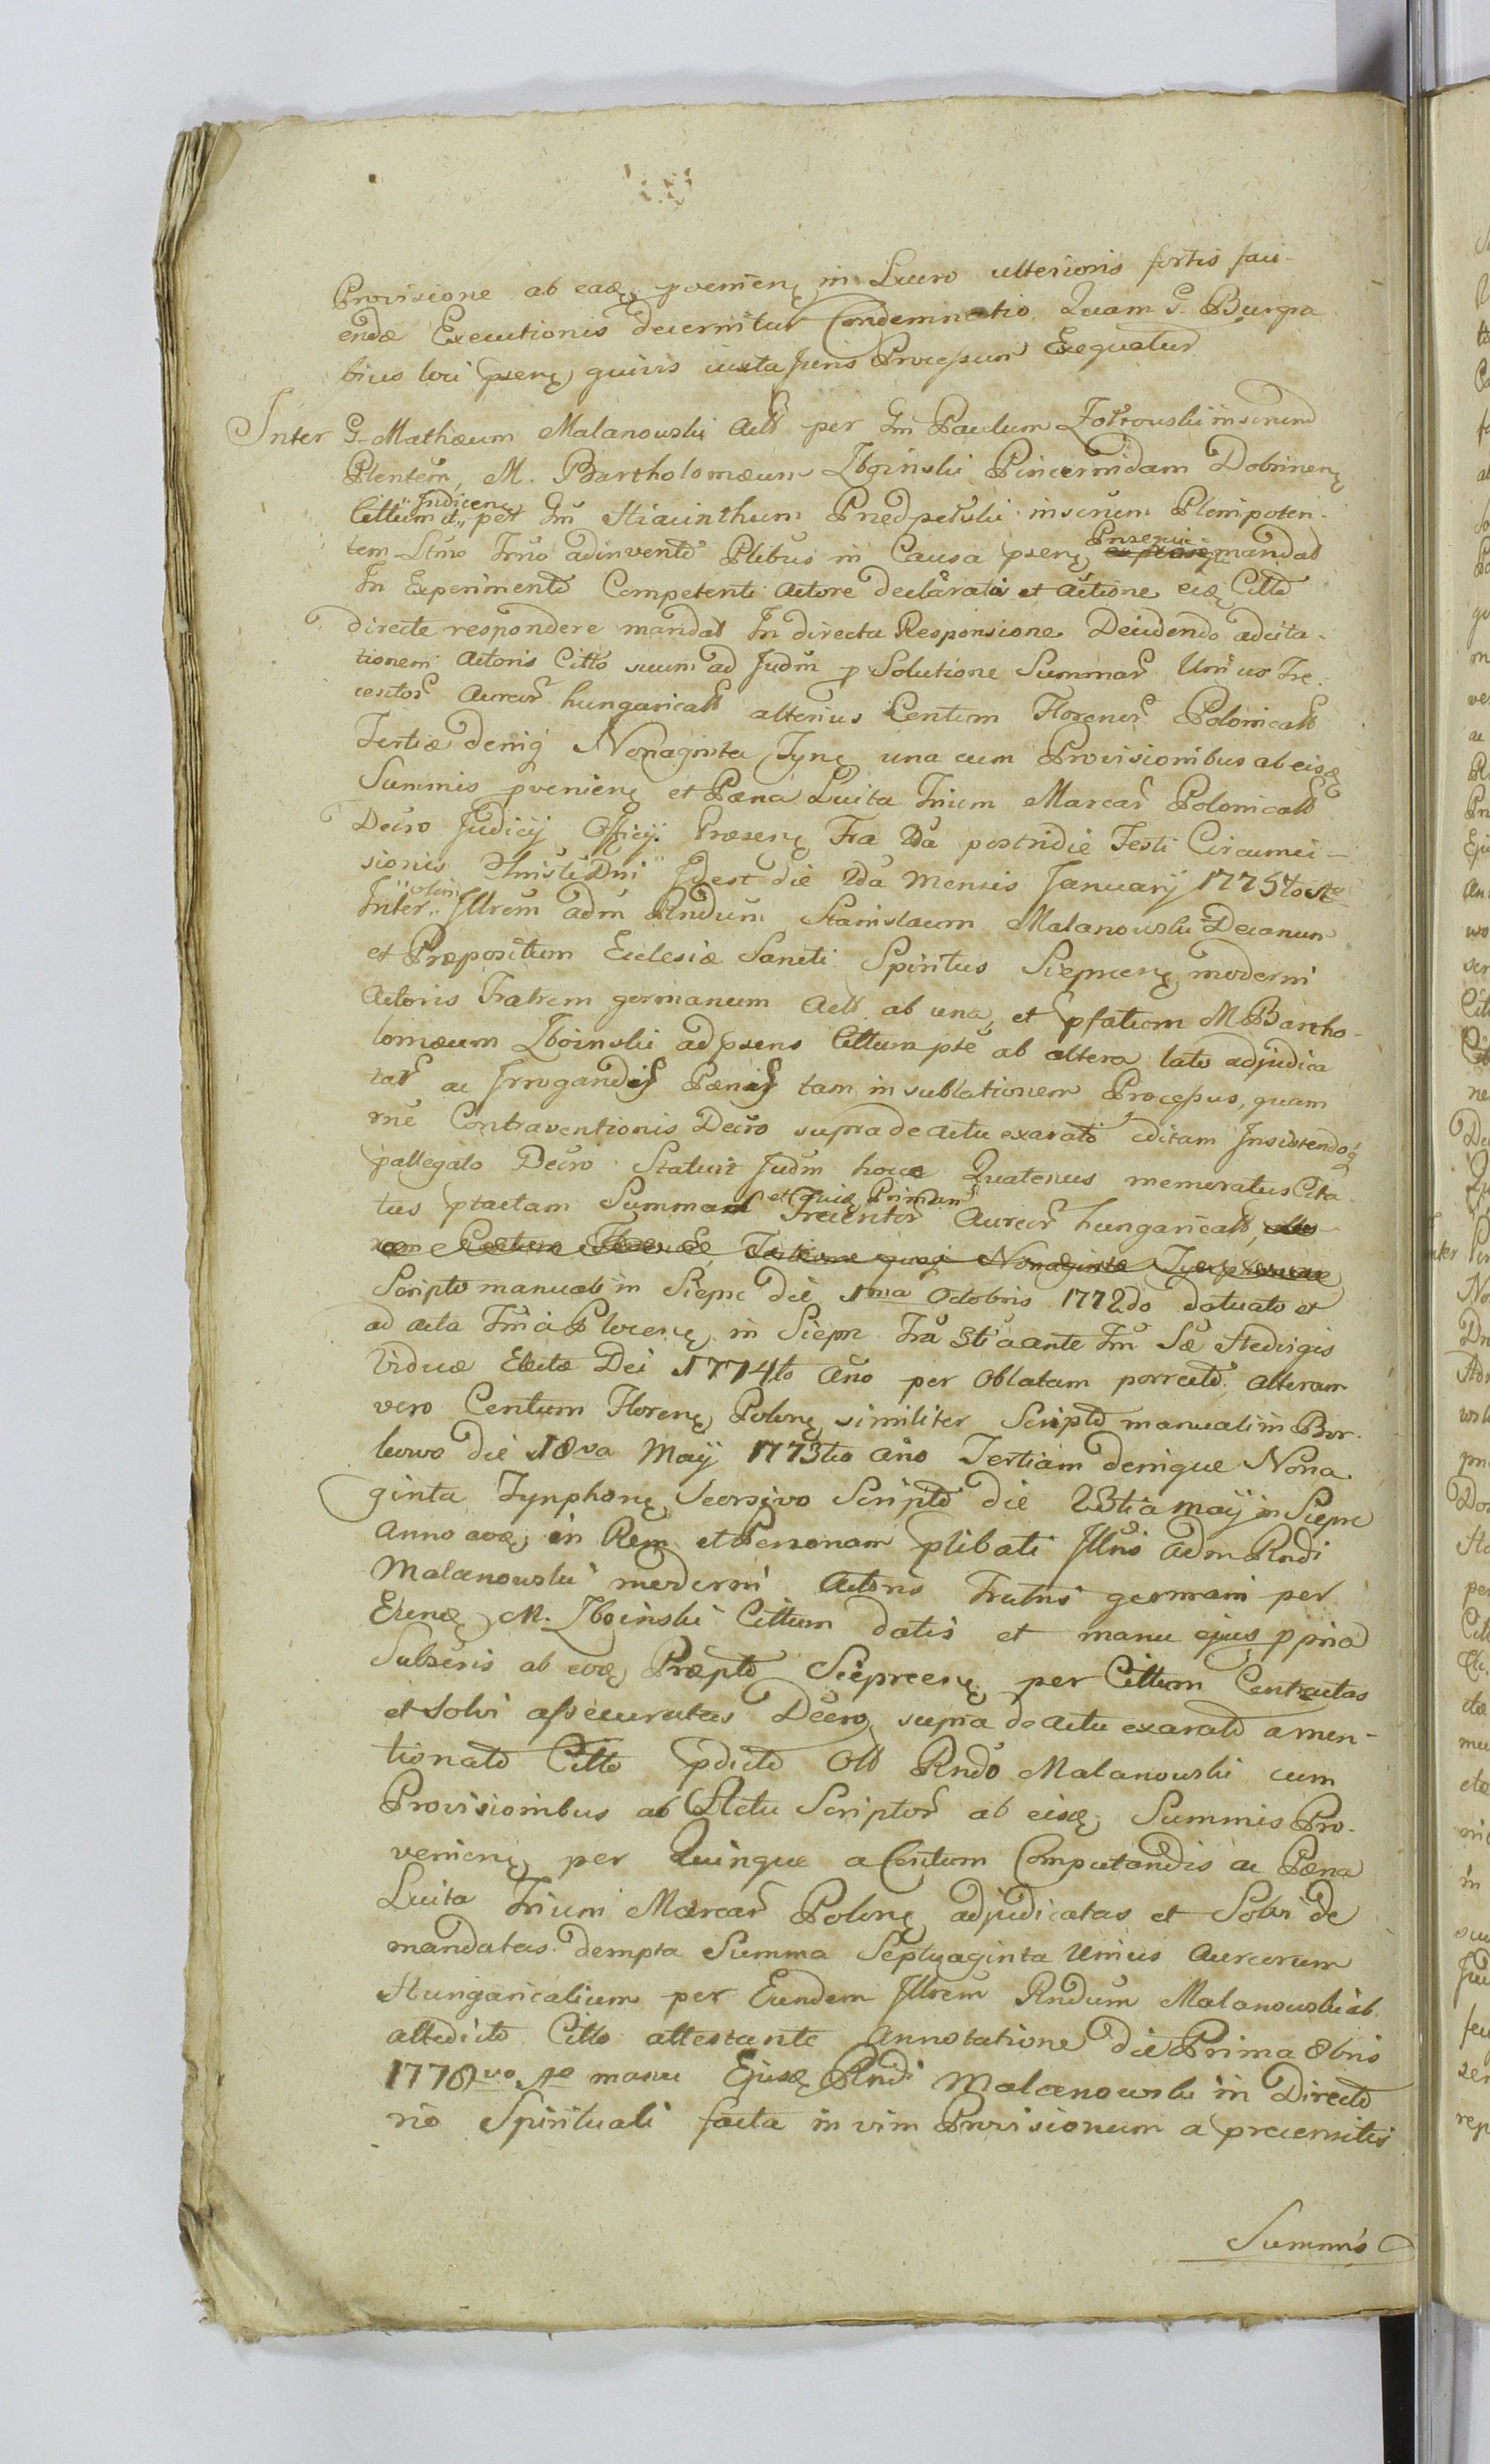 Provisione ab eadē pvenienē in Lucro ulterioris sortis faci-
endæ Executionis decernitur Condemnatio Quam G. Burgra
bius loci psenē quivis iuxta Juris Processum Exequatur
Inter G. Mathæum Malanowski Actt per Gm Paulum inscrum
Plentem, M. Bartholomæum Zboinski Pincernidam Dobrinenē
Cittum Judicenē et per Gm Hiacinthum Przedpełski inscrum Plenipoten-
tem Ltmo Trmo adinvento Ptibus in Causa psenē mandat
In Experimento Competenti Actore declarato et actione eidē Citto
directe respondere mandat In directa Responsione Decidendo adcita-
tionem Actoris Citto suum ad Judm p Solutione Summar Unius Tre-
centor Aureor hungaricatt alterius Centum Florenor Polonicatt
Tertiæ deniq Nonaginta Tynē una cum Provisionibus ab eisdē
Summis pvenienē et Pæna Luita Trium Marcar Polonicatt
Decro Judicij Officij Præsenē Fra 2da postridie Festi Circumci-
sionis Christi Dni Idest die 2da Mensis Januarij 1775to
Inter olim Illrem adm Rndum Stanislaum Malanowski Decanum
et Præpositum Ecclesiæ Sancti Spiritus Siepreenē moderni
Actoris Fratrem germanum Actt ab una, et pfatum M. Bartho-
lomæum Zboinski ad psens Cittum pte ab altera lato adjudica
tar ac Irrogandis Pænis tam in sublationem Processus, quam
rne Contraventionis Decro supra de actu exarato Insistendoq
pallegato Decro Statuit Judm hocce Quatenus memoratus Cita-
tus ptactam Summam et quidē Primam Trecentor Aureor hungaricatt,
Scripto manuali in Siepc die 1ma Octobris 1772do datuato et
ad acta Trria Plocenē in Siepc Fra 3tia ante Fm Sæ Hedvigis
Viduæ Electæ Dei 1774to Año per Oblatam porrecto alteram
vero Centum Florenē Polonē similiter Scripto manuali in Bor-
kowo die 18va Maij 1773tio año Tertiam denique Nona-
ginta Tynphonē Seorsivo Scripto die 23tia maij in Siepc
Anno eodē in Rem et Personam plibati Illris adm Rndi
Malanowski moderni Actoris Fratris germani per
Eundē M. Zboinski Cittum datis et manu ejus ppria
Subscris ab eodē Præpto Siepreenē per Cittum Contractas
et solvi assecuratas Decro supra de actu exarato a men-
tionato Citto pdicto Ott Rndo Malanowski cum
Provisionibus ab Actu Scriptor ab eisdē Summis Pro-
venienē per Quinque a Centum Computandis ac Pæna
Luita Trium Marcar Polonē adjudicatas et Solvi de
mandatas dempta Summa Septuaginta Unius Aureorum
Hungaricalium per Eundem Illrem Rndum Malanowski ab
attedicto Citto attestante Annotatione die Prima 8bris
1778vo manu Ejusdē Rndi Malanowski in Directo
rio Spirituali facta in vim Provisionum a præemitis
Summis